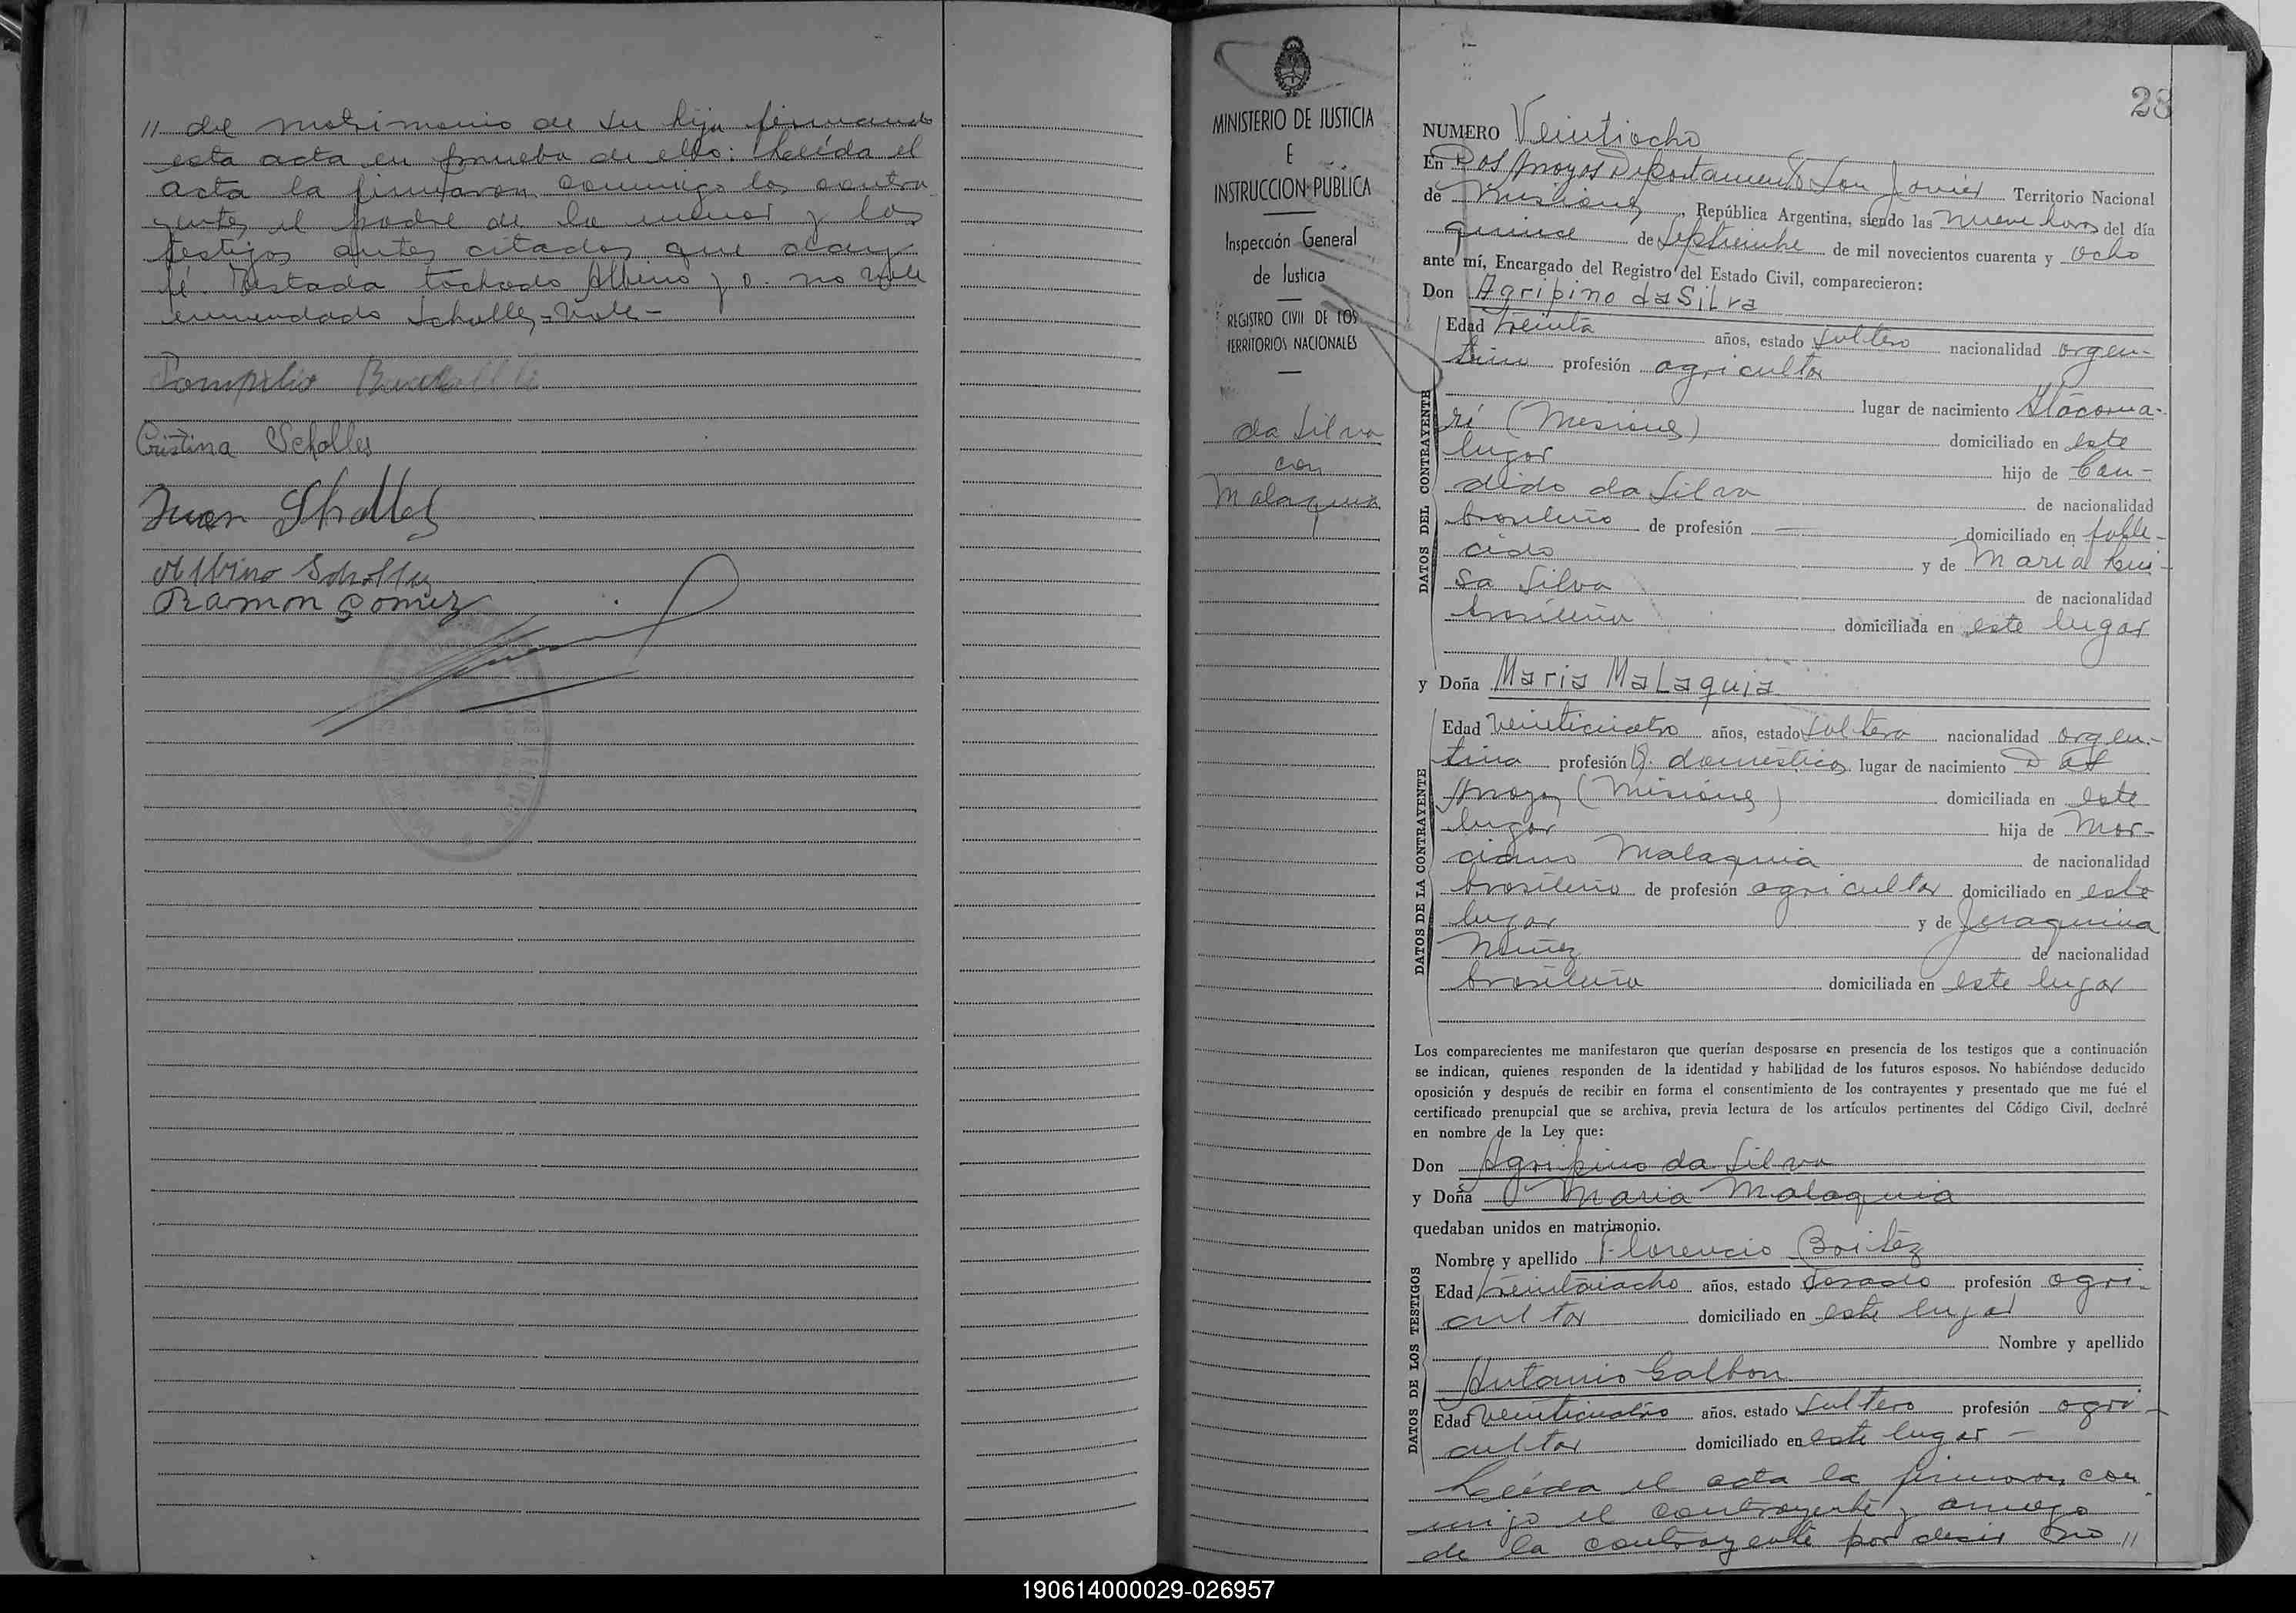 // del matrimonio de su hija firmando
esta acta en prueba de ello: Leída el
acta la firmaron conmigo los contra
yentes el padre de la menor y los
testigos antes citados que doy
fé. Testado tachado Albino y D. no vale
enmendado Scholles = Vale -
Pompilio
Cristina Scholles
Juan Sholles
Albino Scholles
Ramon Gomez
MINISTERIO DE JUSTICIA
E
INSTRUCCION PUBLICA
Inspección General
de Justicia
REGISTRO CIVIL DE LOS
TERRITORIOS NACIONALES
da Silva
con
Malaquia
28
NUMERO Veintiocho
En Dos Arroyos Departamento San Javier Territorio Nacional
de Misiones, República Argentina, siendo las nueve horas del día
quince de Septiembre de mil novecientos cuarenta y ocho
ante mí, Encargado del Registro del Estado Civil, comparecieron:
Don Agripino da Silva
DATOS DEL CONTRAYENTE
Edad treinta años, estado soltero nacionalidad argen-
tino profesión agricultor
lugar de nacimiento Itacarua-
ré (Misiones) domiciliado en este
lugar hijo de Can-
dido da Silva de nacionalidad
brasileño de profesión — domiciliado en falle-
cido y de Maria Lui-
sa Silva de nacionalidad
brasileña domiciliada en este lugar
y Doña Maria Malaquia
DATOS DE LA CONTRAYENTE
Edad veinticuatro años, estado soltera nacionalidad argen-
tina profesión Q. domésticos lugar de nacimiento Dos
Arroyos (Misiones) domiciliada en este
lugar hija de Mar-
ciano Malaquia de nacionalidad
brasileño de profesión agricultor domiciliado en este
lugar y de Jeraquina
Nuñez de nacionalidad
brasileña domiciliada en este lugar
Los comparecientes me manifestaron que querían desposarse en presencia de los testigos que a continuación
se indican, quienes responden de la identidad y habilidad de los futuros esposos. No habiéndose deducido
oposición y después de recibir en forma el consentimiento de los contrayentes y presentado que me fué el
certificado prenupcial que se archiva, previa lectura de los artículos pertinentes del Código Civil, declaré
en nombre de la Ley que:
Don Agripino da Silva
y Doña Maria Malaquia
quedaban unidos en matrimonio.
DATOS DE LOS TESTIGOS
Nombre y apellido Florencio Boitez
Edad treintaiocho años, estado casado profesión agri-
cultor domiciliado en este lugar
Nombre y apellido
Antonio Galbon
Edad veinticuatro años, estado soltero profesión agri-
cultor domiciliado en este lugar -
Leída el acta la firmaron con
migo el contrayente y a ruego
de la contrayente por decir no //
190614000029-026957